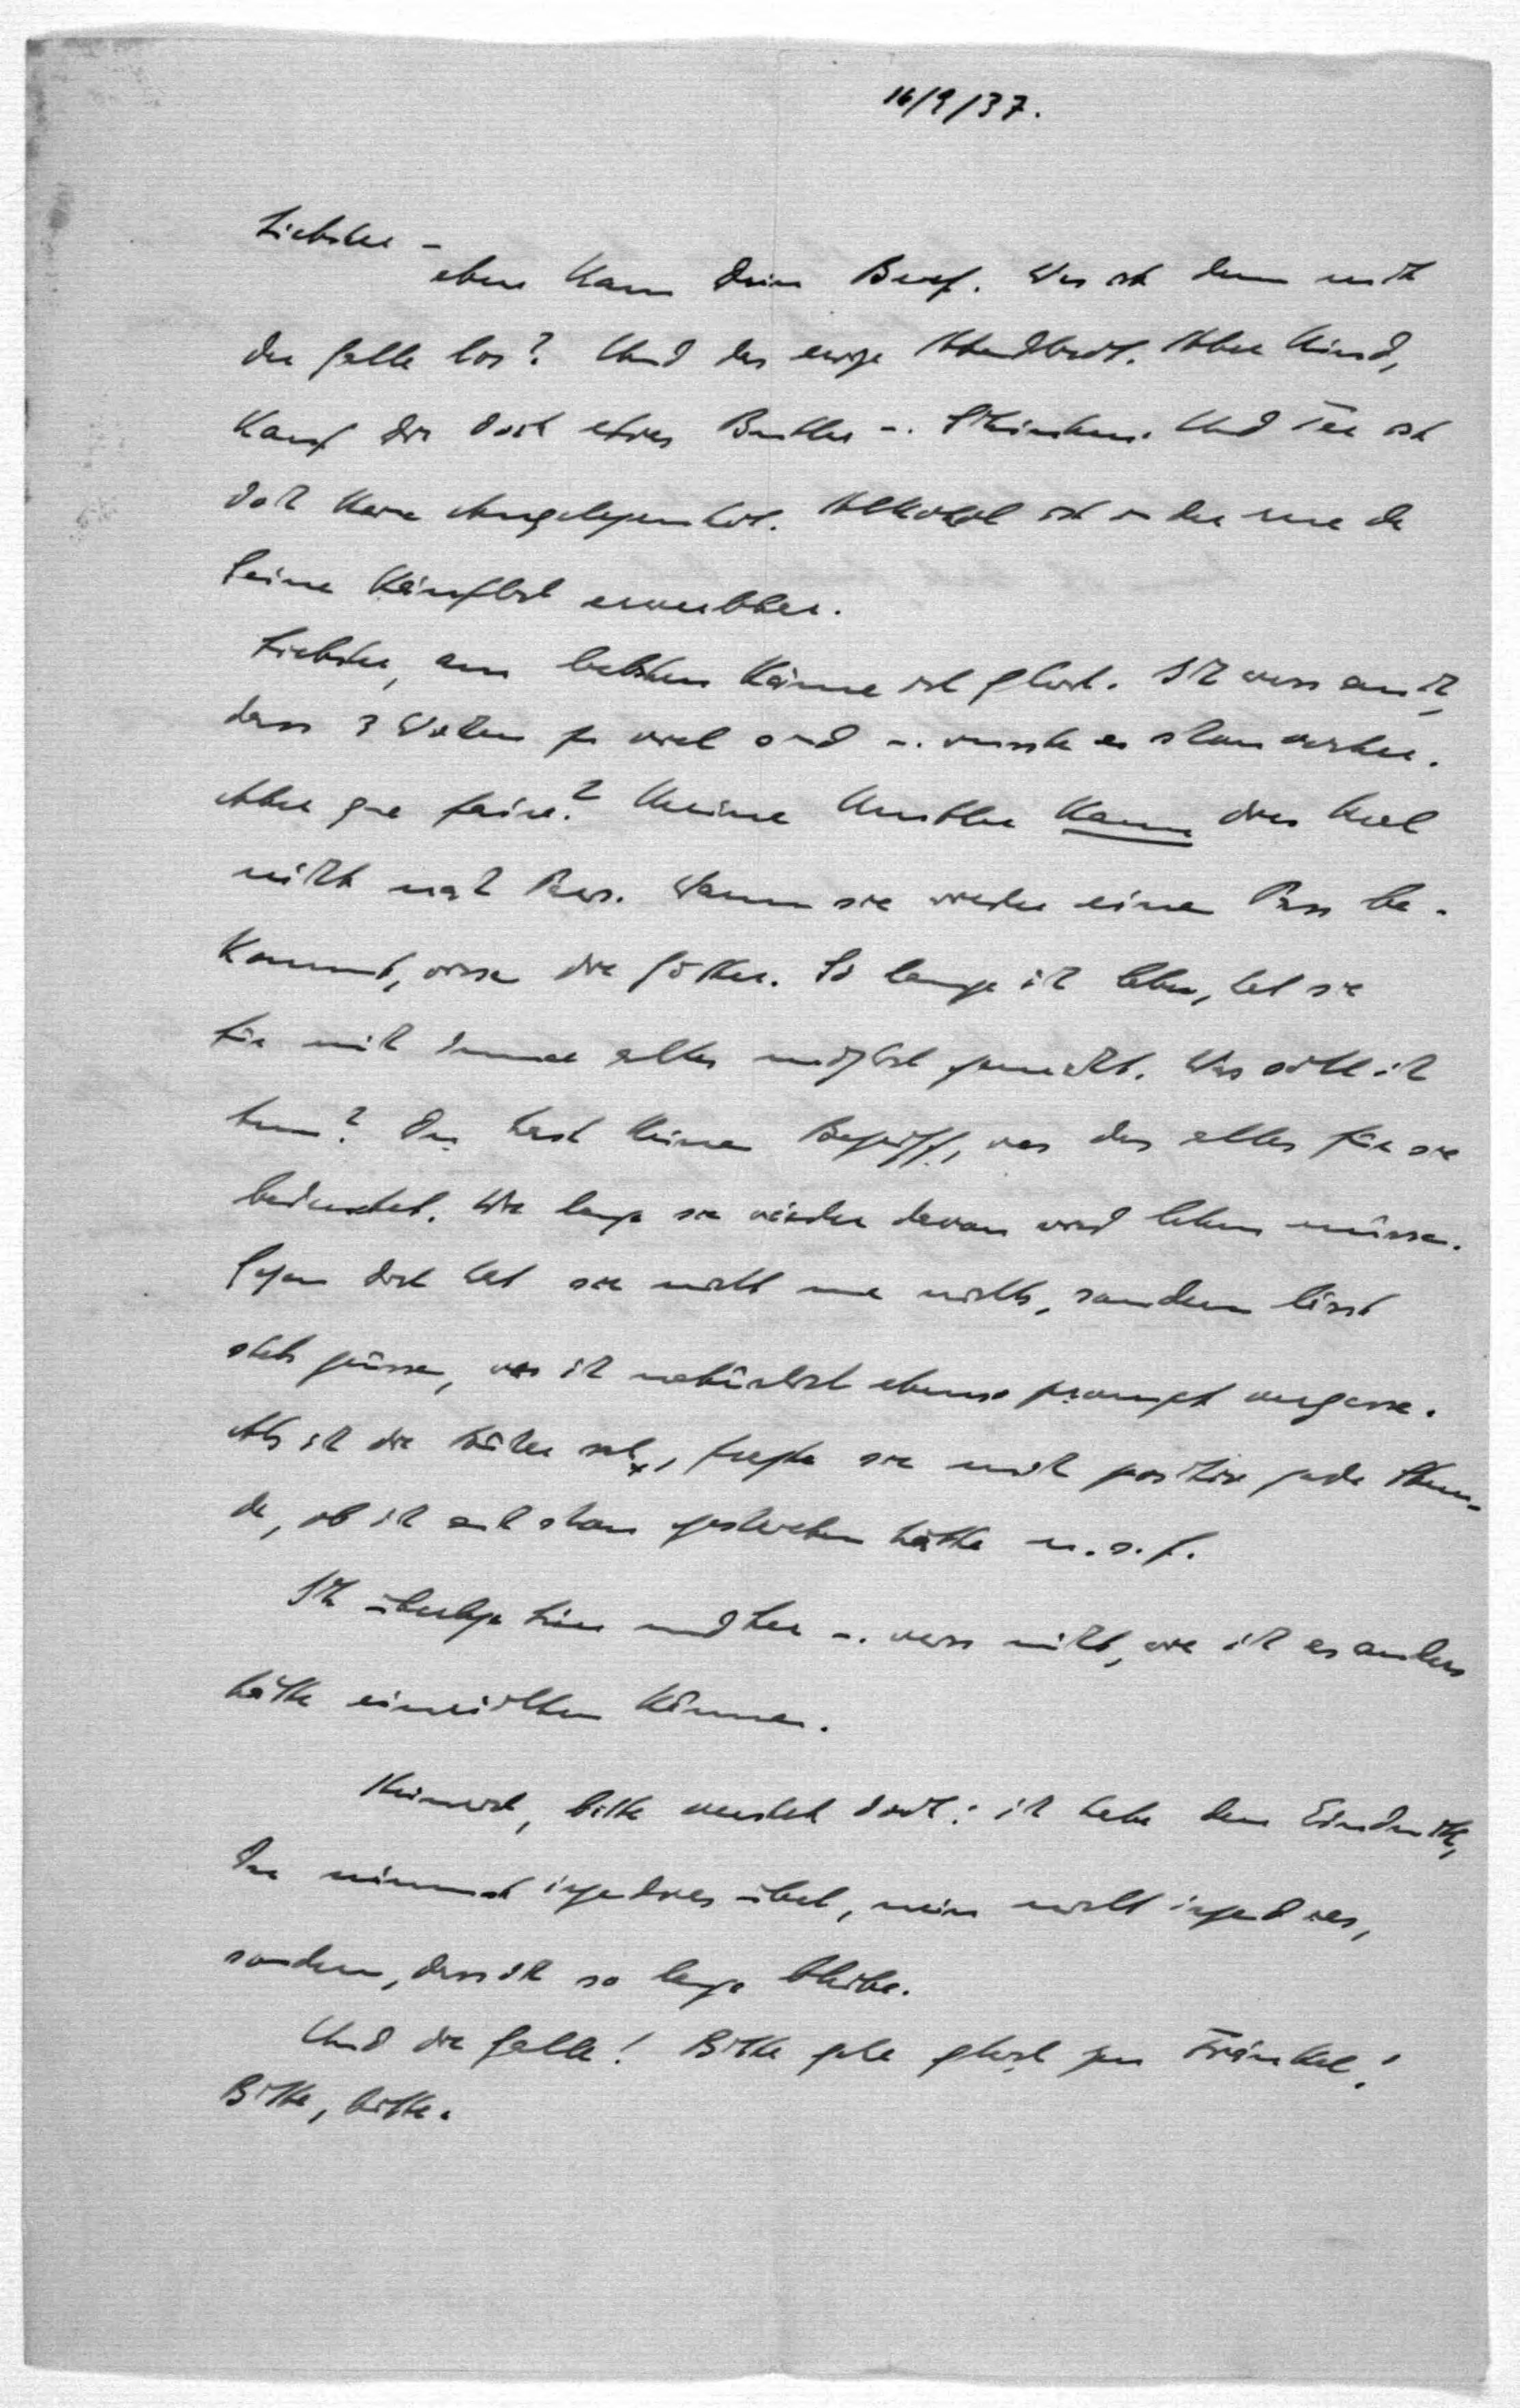 16/9/37.
Liebster –
eben kam Dein Brief. Was ist denn mit
der Galle los? Und das ewige Abendbrot. Aber Kind,
kauf Dir doch etwas Butter u. Schinken. Und Tee ist
doch keine Angelegenheit. Alkohol ist in der rue de
Seine käuflich erwerbbar.
Liebster, am liebsten käme ich gleich. Ich weiss auch,
dass 3 Wochen zu viel sind u. wusste es schon vorher.
Aber que faire? Meine Mutter kann dies Mal
nicht nach Paris. Wann sie wieder einen Pass be-
kommt, wissen die Götter. So lange ich lebe, hat sie
für mich immer alles möglich gemacht. Was sollte ich
tun? Du hast keinen Begriff, was das alles für sie
bedeutet. Wie lange sie wieder davon wird leben müssen.
Gegen Dich hat sie nicht nur nichts, sondern lässt
stets grüssen, was ich natürlich ebenso prompt vergesse.
Als ich die sah, fragte sie mich positiv jede Stun-
de, ob ich auch schon geschrieben hätte u.s.f.
Ich überlege hin und her u. weiss nicht, wie ich es anders
hätte einrichten können.
Heinrich, bitte versteh doch: ich habe den Eindruck,
Du nimmst irgendwas übel, nein nicht irgend was,
sondern, dass ich so lange bleibe.
Und die Galle! Bitte gehe gleich zu Fränkel!
Bitte, bitte.